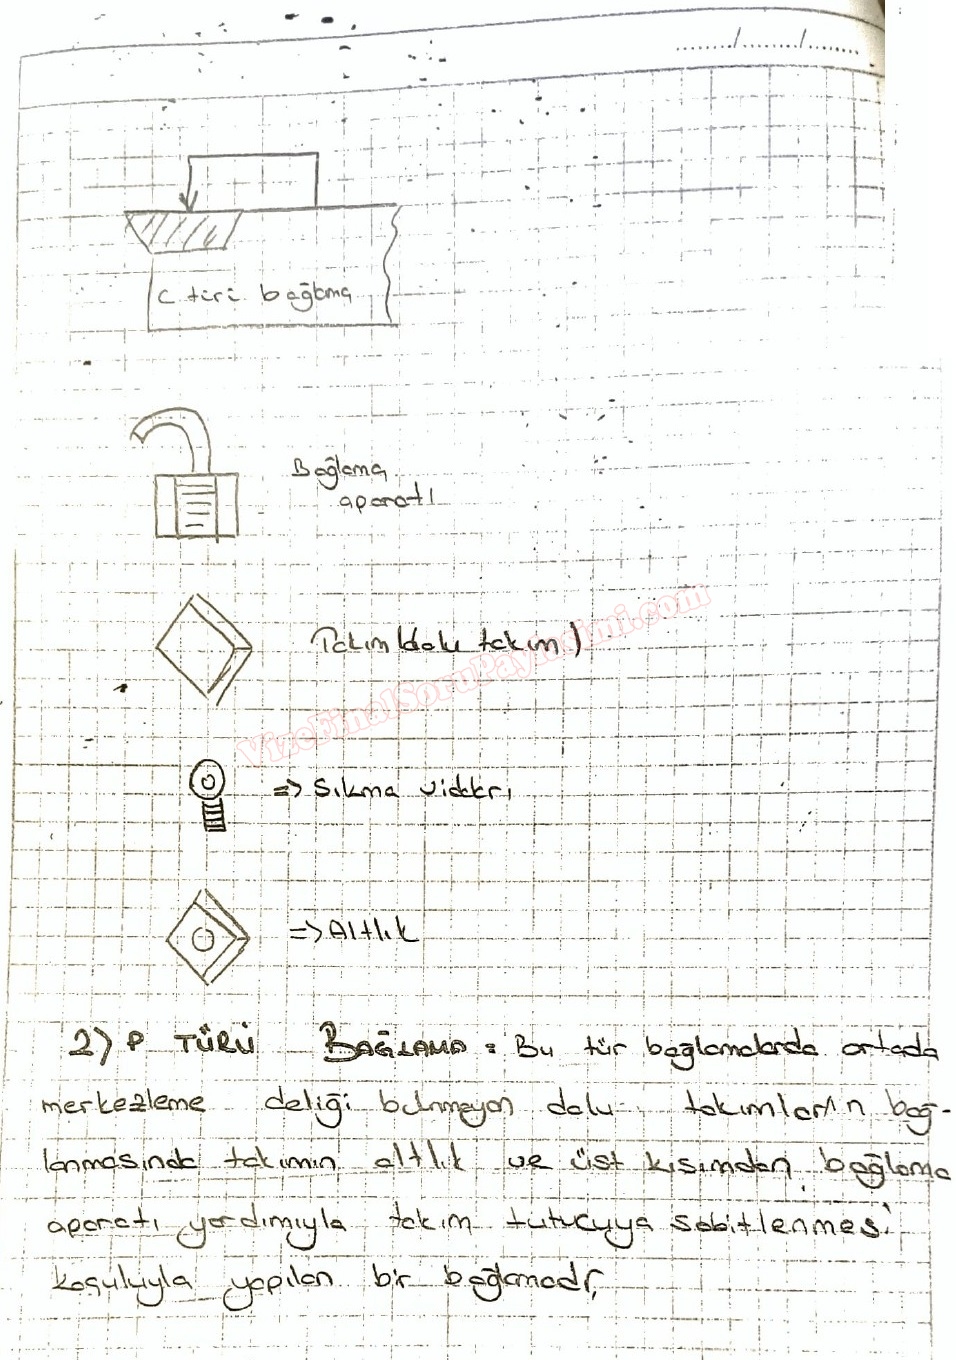 ....../......./.......
C türü bağlama
Bağlama
aparatı
Takım (dolu takım)
VizeFinalSoruPaylasimi.com
=> Sıkma vidaları
=> Altlık
2) P TÜRÜ BAĞLAMA : Bu tür bağlamalarda ortada
merkezleme deliği bulunmayan dolu takımların bağ-
lanmasında takımın altlık ve üst kısımdan bağlama
aparatı yardımıyla takım tutucuya sabitlenmesi
koşuluyla yapılan bir bağlamadır.